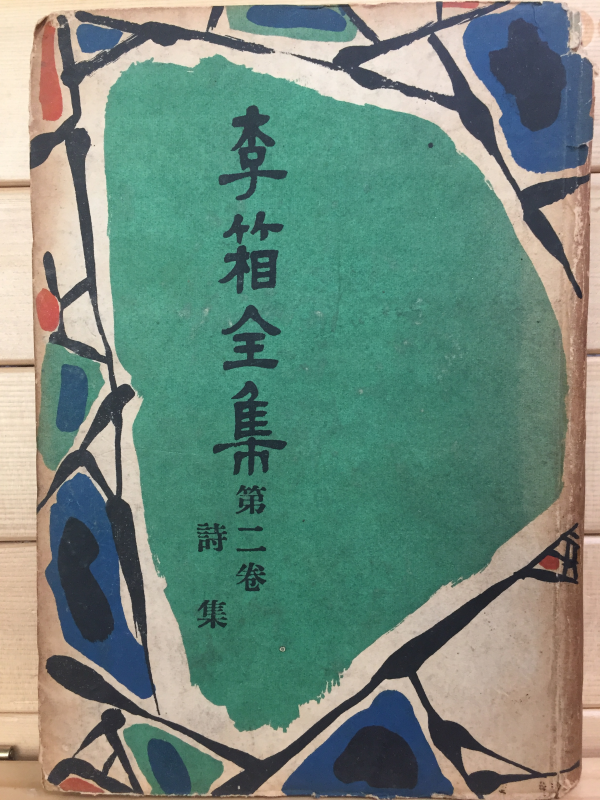 李箱全集
第二卷
詩集